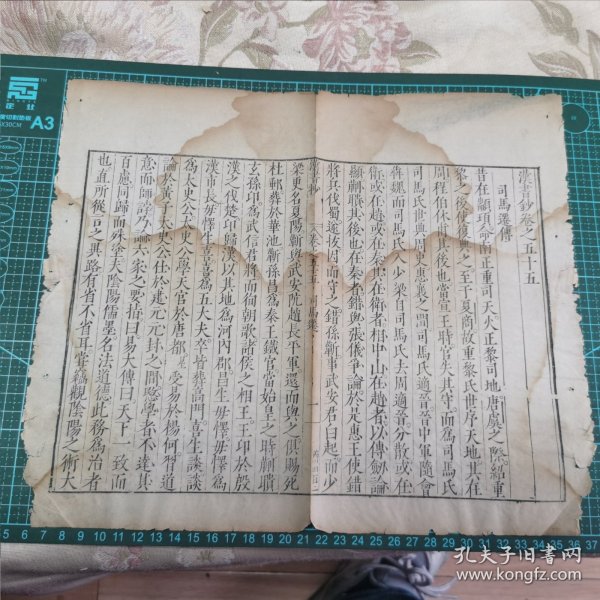 漢書鈔卷之五十五
司馬遷傳
昔在顓頊命南正重司天火正黎司地唐虞之際紹重
黎之後使復典之至于夏商故重黎氏世序天地其在
周程伯休甫其後也當宣王時官失其守而為司馬氏
司馬氏世典周史惠襄之間司馬氏適晉晉中軍隨會
犇魏而司馬氏入少梁自司馬氏去周適晉分散或在
衛或在趙或在秦其在衛者相中山在趙者以傳劒論
顯蒯聵其後也在秦者錯與張儀爭論於是惠王使錯
將兵伐蜀遂拔因而守之錯孫蘄事武安君白起而少
漢書鈔
卷之五十五
司馬遷
一
梁更名夏陽蘄與武安阬趙長平軍還而與之俱賜死
杜郵葬於華池蘄孫昌為秦王鐵官當始皇之時蒯聵
玄孫卬為武信君將而徇朝歌諸侯之相王王卬於殷
漢之伐楚卬歸漢以其地為河內郡昌生毋懌毋懌為
漢市長毋懌生喜喜為五大夫卒皆葬高門喜生談談
為太史公太史公學天官於唐都受易於楊何習道
論於黃子太史公仕於建元元封之間愍學者不達其
意而師誖乃論六家之要指曰易大傳曰天下一致而
百慮同歸而殊塗夫陰陽儒墨名法道德此務為治者
也直所從言之異路有省不省耳嘗竊觀陰陽之術大
正仕
A3
5 6 7 8 9 10 11 12 13 14 15 16 17 18 19 20 21 22 23 24 25 26 27 28 29 30 31 32 33 34 35 36 37
孔夫子旧书网
www.kongfz.com